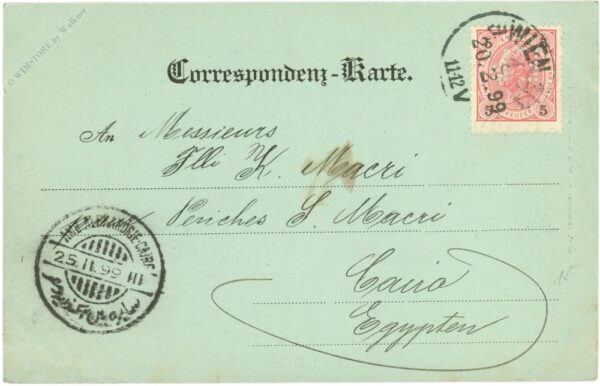 © WIMSTORE by Walkner
Correspondenz-Karte.
WIEN
20. 2. 99
11-12 V
5 KREUZER 5
An Messieurs
Flli K. Macri
Periches S. Macri
Cairo
Egypten
ALEXANDRIE-CAIRE
25.II.99 III